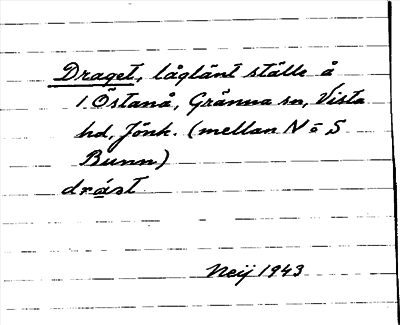 Draget, låglänt ställe å
1 Östanå, Gränna sn, Vista
hd, Jönk. (mellan N o S
Bunn)
Neij 1943